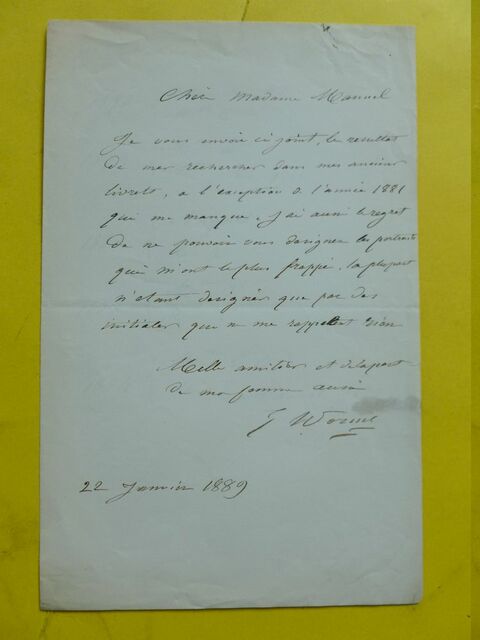 Chère Madame Manuel
Je vous envoie ci joint, le resultat
de mes recherches dans mes anciens
livrets, a l'exception de l'année 1881
qui me manque, J'ai aussi le regret
de ne pouvoir vous designer les portraits
qui m'ont le plus frappé, la plupart
n'etant designés que par des
initiales que ne me rappellent rien
Mille amitiés et de la part
de ma femme aussi
J Worms
22 Janvier 1889